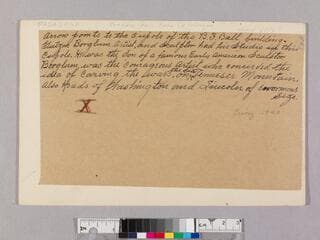 Arrow points to the cupola of the B.F. Ball building.
Borglum Artist, and Sculptor had his Studio up this
Cupola. He was the son of a famous Early American Sculptor
Borglum was the couragous artist who conceived the
idea of carving the Civil War on Tennessee Mountain.
also Heads of Washington and Lincoln of enormous
Size.
X